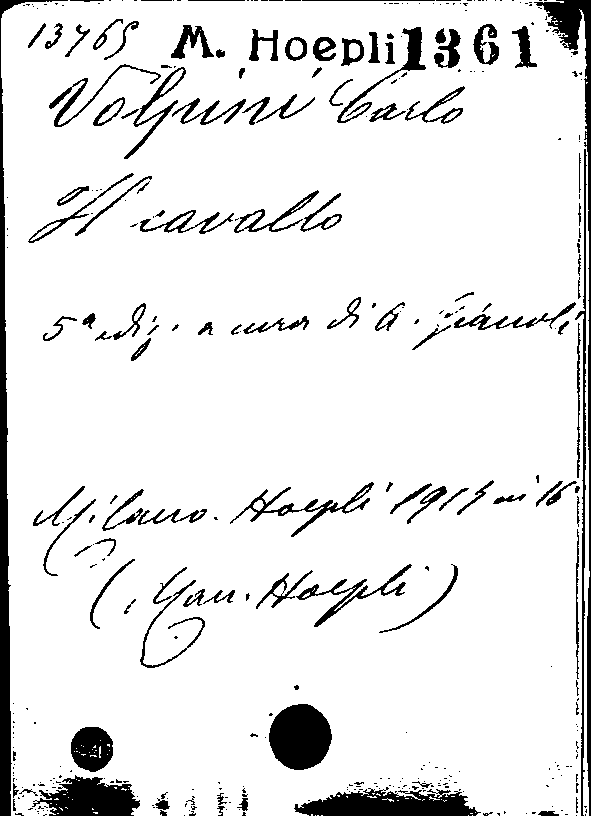 13765 M. Hoepli 1361
Volpini Carlo
Il cavallo
5ª ediz. a cura di G. Gianoli
Milano. Hoepli 1915 in 16º
(Man. Hoepli)